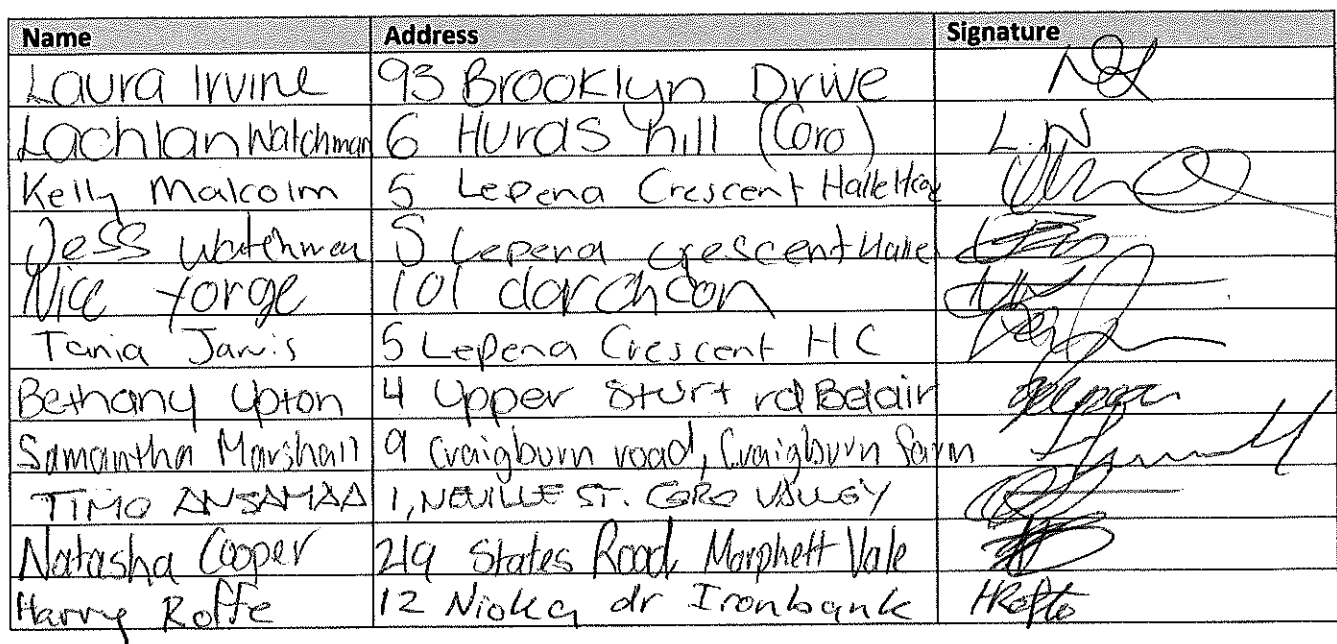 Name Address Signature
Laura Irvine 93 Brooklyn Drive
Lachlan Watchman 6 Hurds hill (Coro) L.N
Kelly Malcolm 5 Lepena Crescent
Jess Watchman 5 Lepena crescent Halle
101
Tania Jarvis 5 Lepena Crescent H C
Bethany Upton 4 Upper Sturt rd Belair
Samantha Marshall 9 Craigburn road, Craigburn farm
TIMO ANSAMAA 1, NEVILLE ST. CORO VALLEY
Natasha Cooper 219 States Road, Morphett Vale
Harry Roffe 12 Nioka dr Ironbank